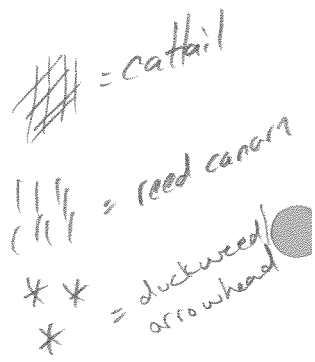 = cattail
= reed canary
= duckweed/
arrowhead